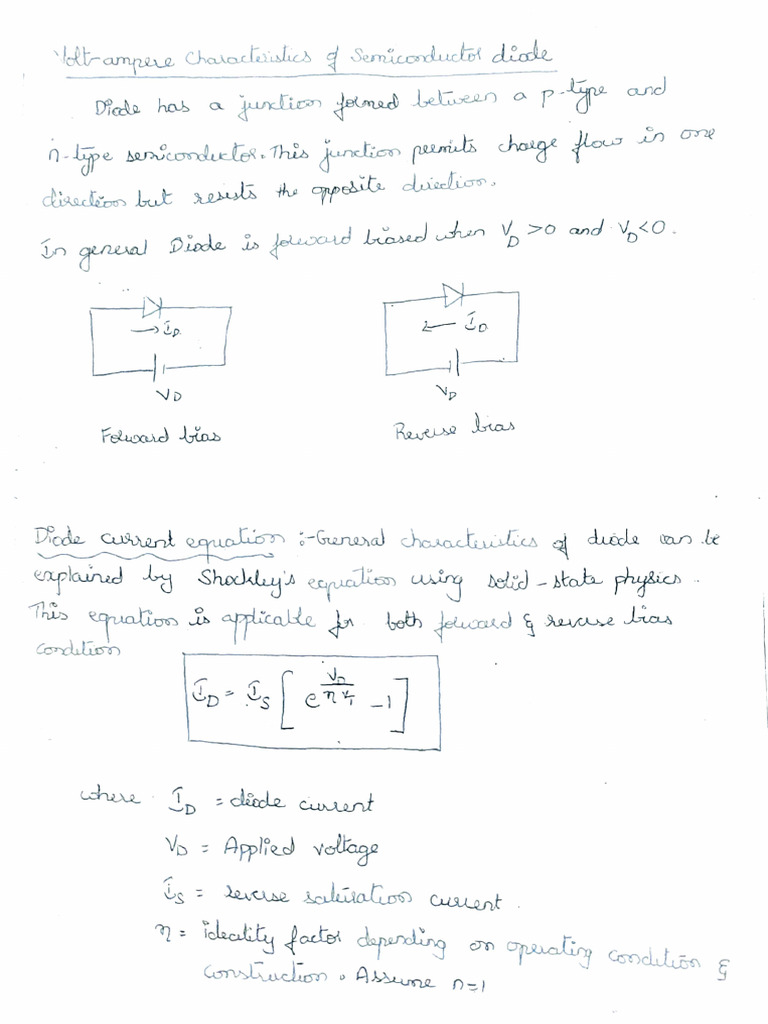 Volt-ampere Characteristics of Semiconductor diode
Diode has a junction formed between a p-type and
n-type semiconductor. This junction permits charge flow in one
direction but resists the opposite direction.
In general Diode is forward biased when V_D >0 and V_D<0.
→ I_D
← I_D
V_D
V_D
Forward bias
Reverse bias
Diode current equation :- General characteristics of diode can be
explained by Shockley's equation using solid-state physics.
This equation is applicable for both forward & reverse bias
condition
I_D = I_S [ e^{V_D/ηV_T} -1 ]
where I_D = diode current
V_D = Applied voltage
I_S = reverse saturation current.
η = ideality factor depending on operating condition &
construction. Assume n=1